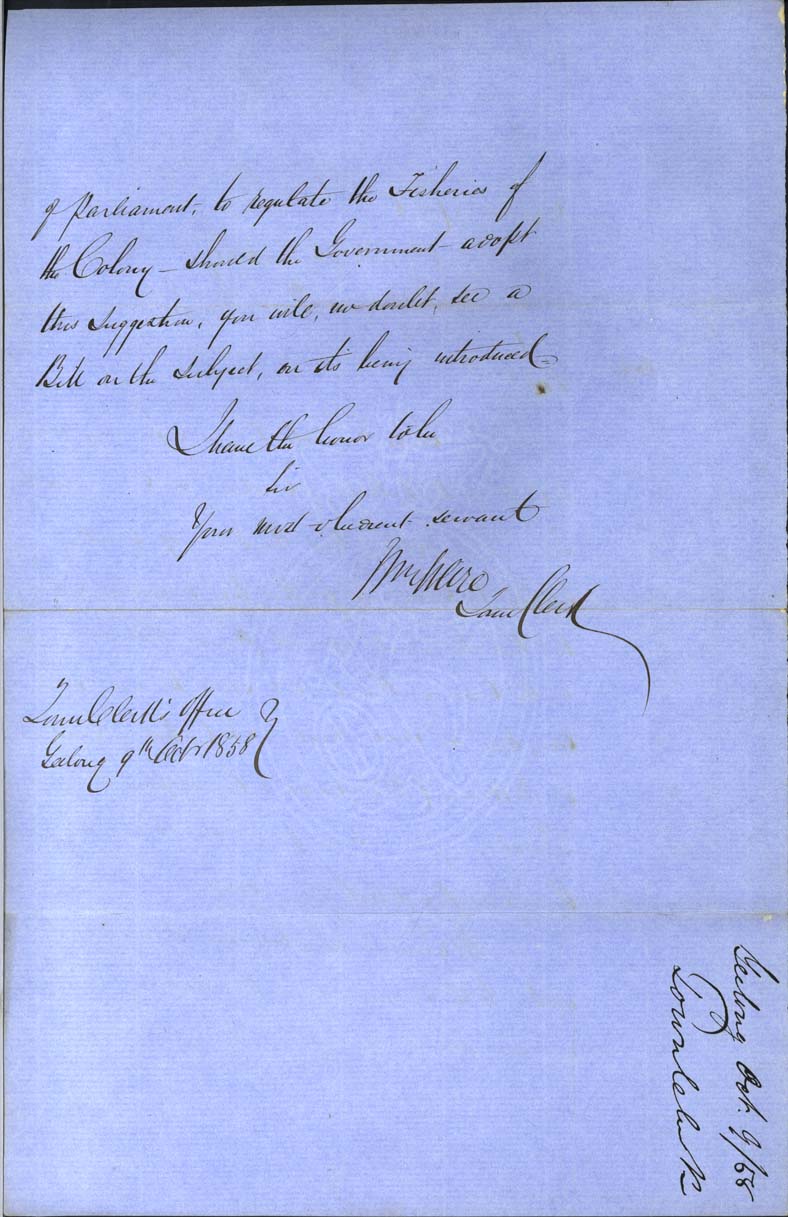 of Parliament, to regulate the Fisheries of
the Colony – should the Government adopt
this suggestion, you will, no doubt, see a
Bill on the subject, on its being introduced –
I have the honor to be
Sir
Your most obedient servant
Wm Weire
Town Clerk
Town Clerk's Office
Geelong 9th Octr 1858
Geelong Oct. 9/58
Town Clerk